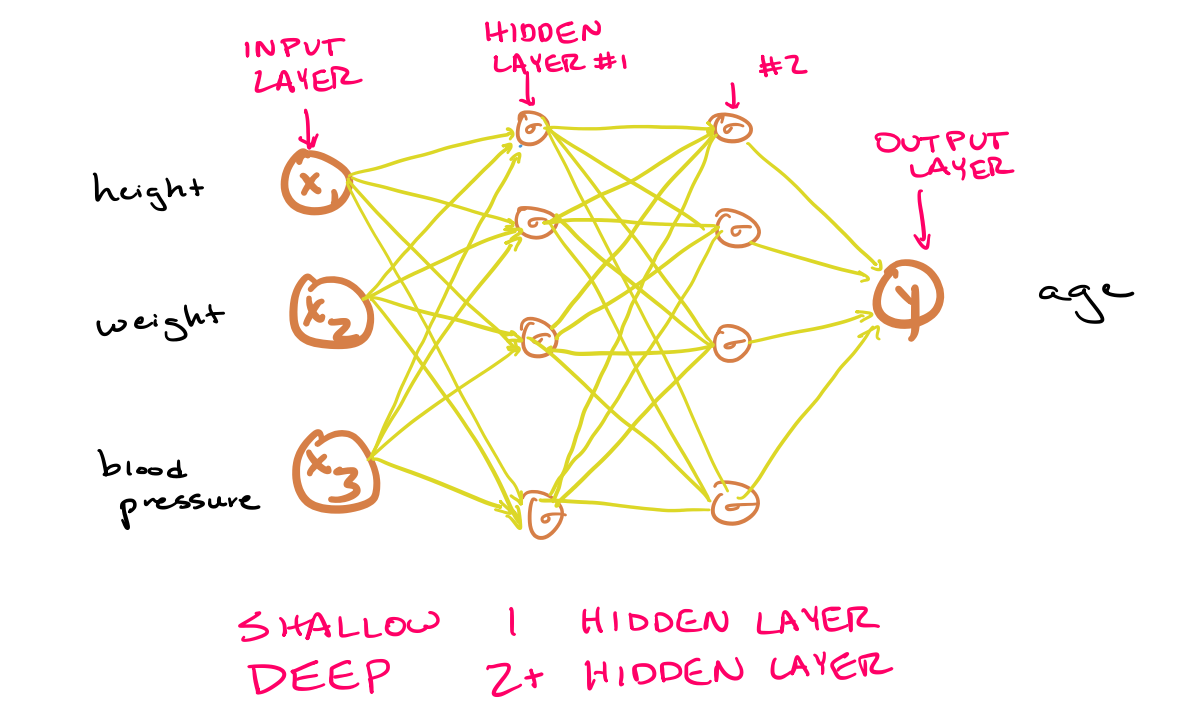 INPUT
LAYER
HIDDEN
LAYER #1
#2
OUTPUT
LAYER
height
x1
σ
σ
weight
x2
σ
σ
y
age
σ
σ
blood
pressure
x3
σ
σ
SHALLOW 1 HIDDEN LAYER
DEEP 2+ HIDDEN LAYER